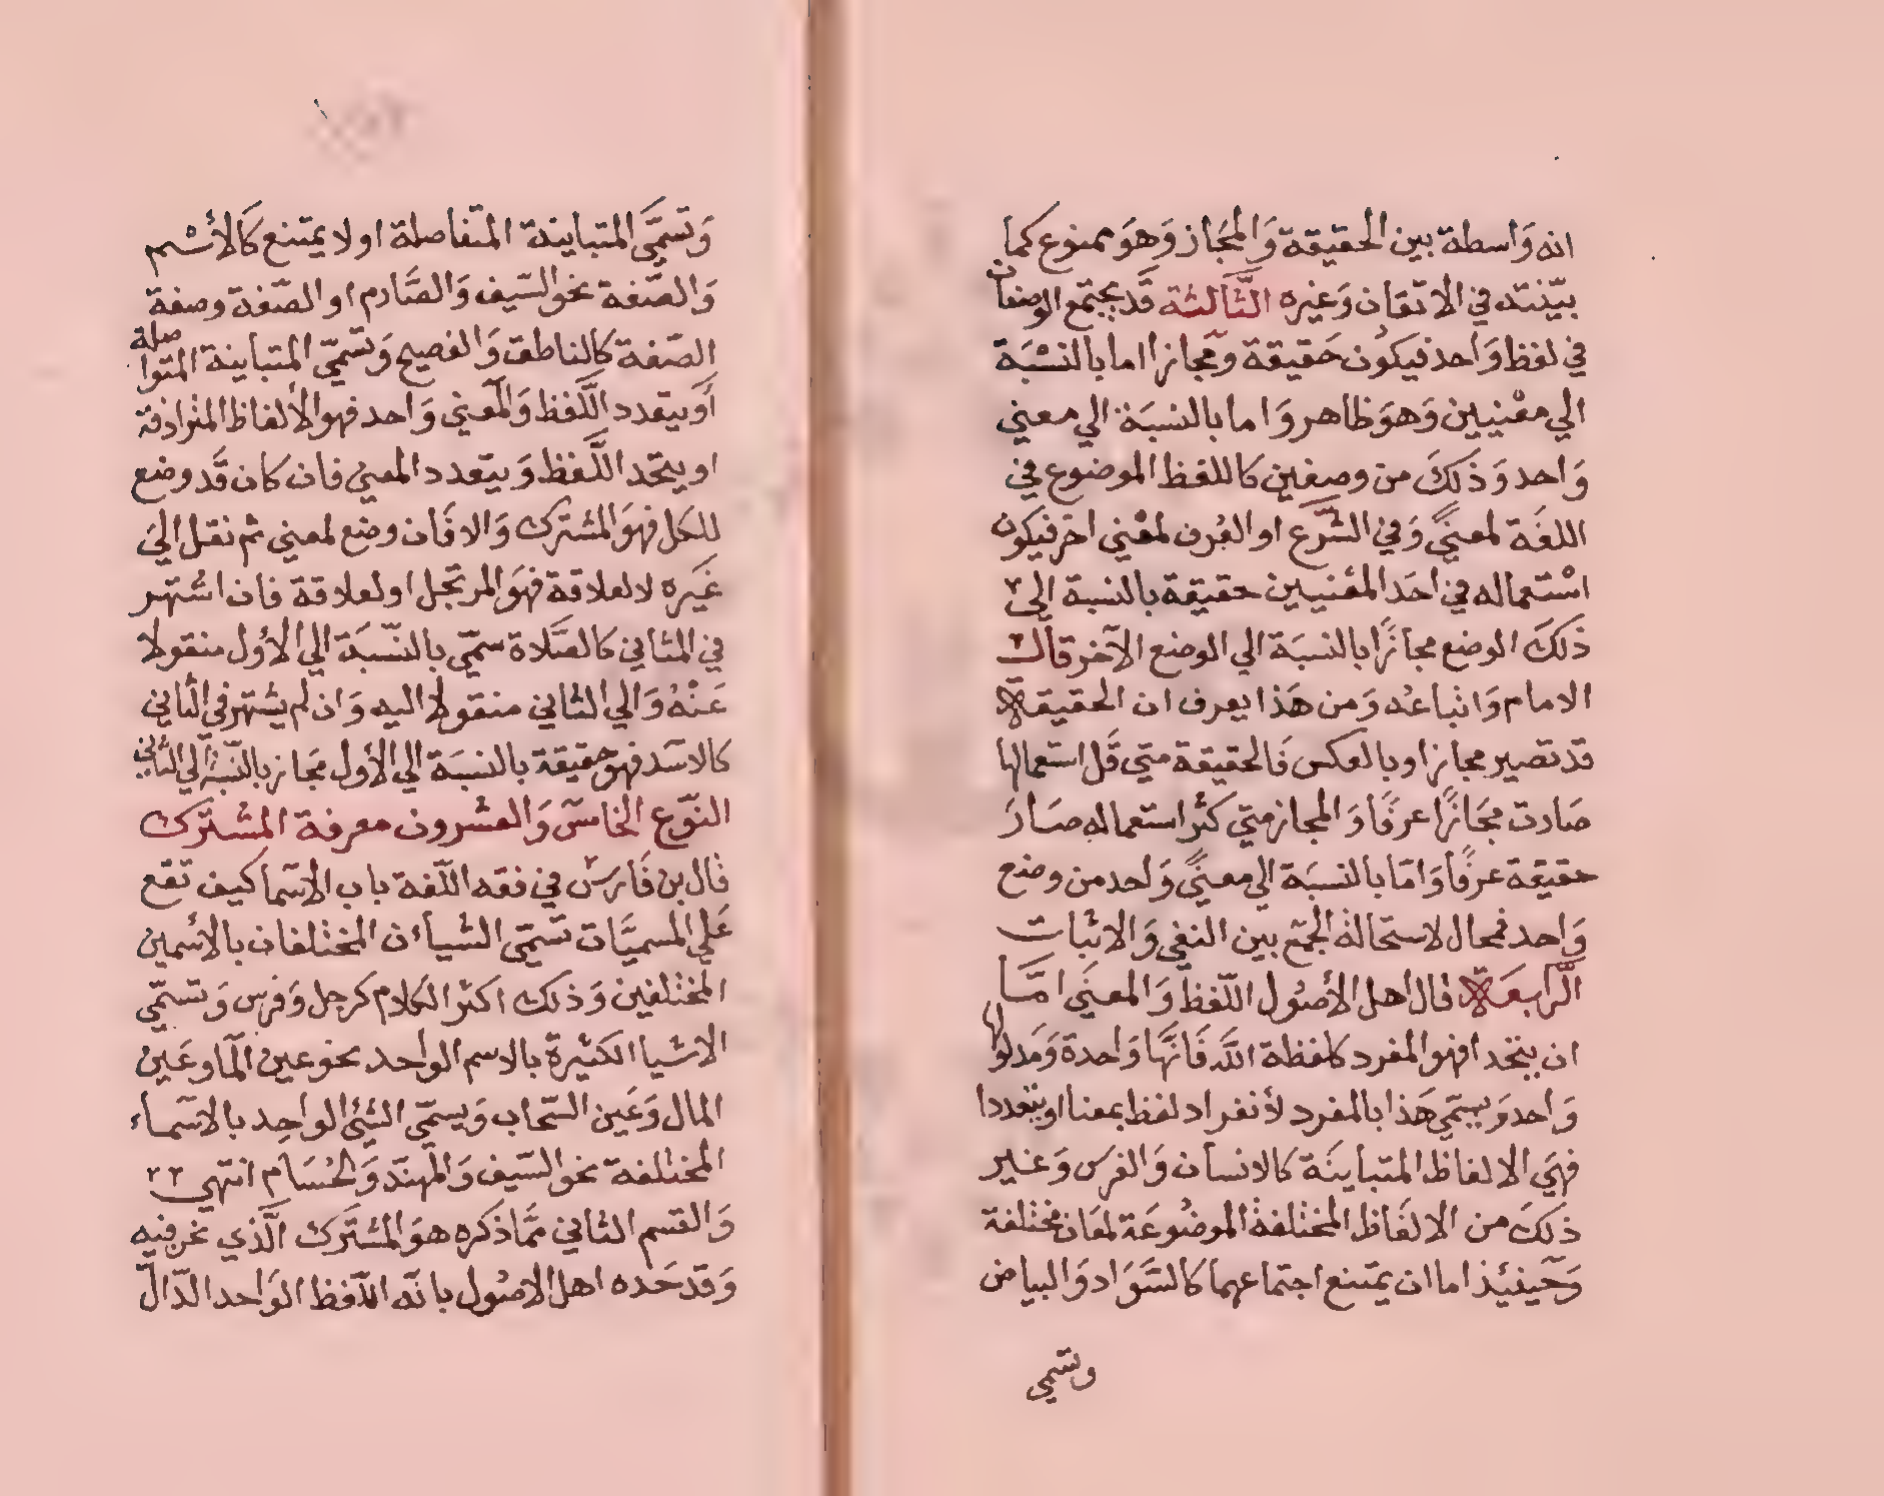 انه وَاسطة بين الحقيقة وَالمجَاز وَهوَ ممنوع كما
بيّنته في الاتقان وَغيره الثَّالثة قَد يجتمع الوصفان
في لفظ وَاحد فيكون حَقيقة ومجازا اما بالنسْبَة
الي معْنيين وَهوَ ظاهر وَاما بالنسبَة الي معني
وَاحد وَذَلكَ من وصفين كاللفظ الموضوع في
اللغَة لمعنيً وَفي الشّرع او العُرف لمعْني اخر فيكون
اسْتعماله في احَد المعْنيين حقيقة بالنسبة الي
ذَلكَ الوضع مجازًا بالنسبَة الي الوضع الآخر قال
الامام وَاتباعُه وَمن هَذا يعرف ان الحقيقة
قد تصير مجازا وبالعكس فَالحقيقة متي قَل استعمالها
صَارت مجَازًا عرفًا وَالمجاز متي كثر استعماله صَارَ
حقيقة عرفًا وَامّا بالنسبَة الي معنيً وَاحد من وضع
وَاحد فمحال لاستحالة الجمع بين النفي وَالاثبات
الرّابعَة قال اهل الأصُول اللّفظ وَالمعنَي امَّا
ان يتحدا فهو المفرد كلفظة اللَّه فَانَّها وَاحدة وَمَدلولها
وَاحد وَيسمّي هَذا بالمفرد لأنفراد لفظ بمعناا ويتعددا
فهيَ الالفاظ المتبأينَة كالانسأن وَالفرس وَغير
ذلكَ من الالفَاظ المختلفة الموضُوعَة لمعَان مختلفة
وَحينئيذ اما ان يمتنع اجتماعهما كالسَّوَاد وَالبياض
وتسمي
وَتسمَّي المتباينة المتفاصلة او لا يمتنع كَالأسْم
وَالصّفة نحو السّيف وَالصَّارم او الصّفة وصفة
الصّفة كالناطق وَالفصيح وَتسميّ المتباينة المتواصلة
أَو يتعدد اللَّفظ وَالمعني وَاحد فهو الألفاظ المترادفة
او يتحد اللَّفظ وَيتعدد المعني فان كان قَد وضع
للكل فهوَ المشترك وَالا فَان وضع لمعني ثم نقل اليَ
غَيره لا لعلاقة فهَوَ المرتجل او لعلاقة فان اشتهر
في الثاني كالصَّلاة سمّي بالنّسبَة الي الأول منقولا
عَنْهُ وَالي الثاني منقولا اليه وَان لم يشتهر في الثاني
كالاسَد فهو حقيقة بالنسبَة الي الأول مجَاز بالنّسبة الي الثاني
النّوع الخامس وَالعشرون معرفة المشترك
قال بن فَارسْ في فقه اللّغة باب الاسما كيف تقع
عَلي المسميَّات تسَمّي الشيأن المختلفان بالأسمين
المختلفين وَذلك اكثر الكلام كرجل وَفرس وَتسمّي
الاشيا الكثيرة بالاسم الواحد نحو عين الما وعَين
المال وَعَين السّحاب وَيسمّي الشئ الواحِد بالاسماء
المختلفة نحو السّيف وَالمهنّد وَالحُسَام انتهي
وَالقسم الثاني ممَّا ذكره هوَ المشترك الّذي نحن فيه
وَقد حَده اهل الاصُول بانّه اللّفظ الوَاحد الدّالّ